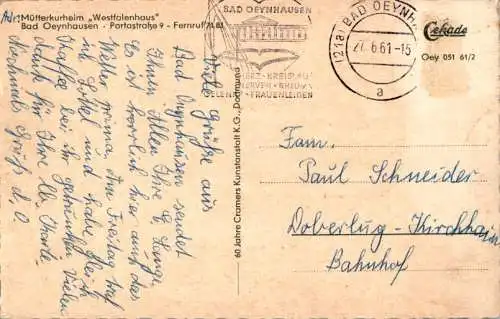 Adr.: Mütterkurheim „Westfalenhaus"
Bad Oeynhausen - Portastraße 9 - Fernruf 7183
BAD OEYNHAUSEN
HERZ-KREISLAUF
NERVEN-RHEUMA
GELENK-FRAUENLEIDEN
(21a) BAD OEYNH
27.6.61-15
a
Cekade
Oey 051 61/2
60 Jahre Cramers Kunstanstalt K.G., Dortmund
Viele Grüße aus
Bad Oeynhausen sendet
Ihnen Allen Ihre
Es ist herrlich hier auch das
Wetter prima. Am Freitag traf
ich und habe gleich
Kaffee bei ihr getrunken Vielen
Dank für Ihre lb. Karte.
Nochmals Gruß d. O.
Fam.
Paul Schneider
Doberlug-Kirchhain
Bahnhof